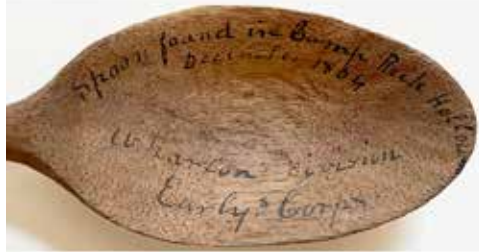 Spoon found in Camp Rude Hollow
December 1864
Wharton's Division
Early's Corps